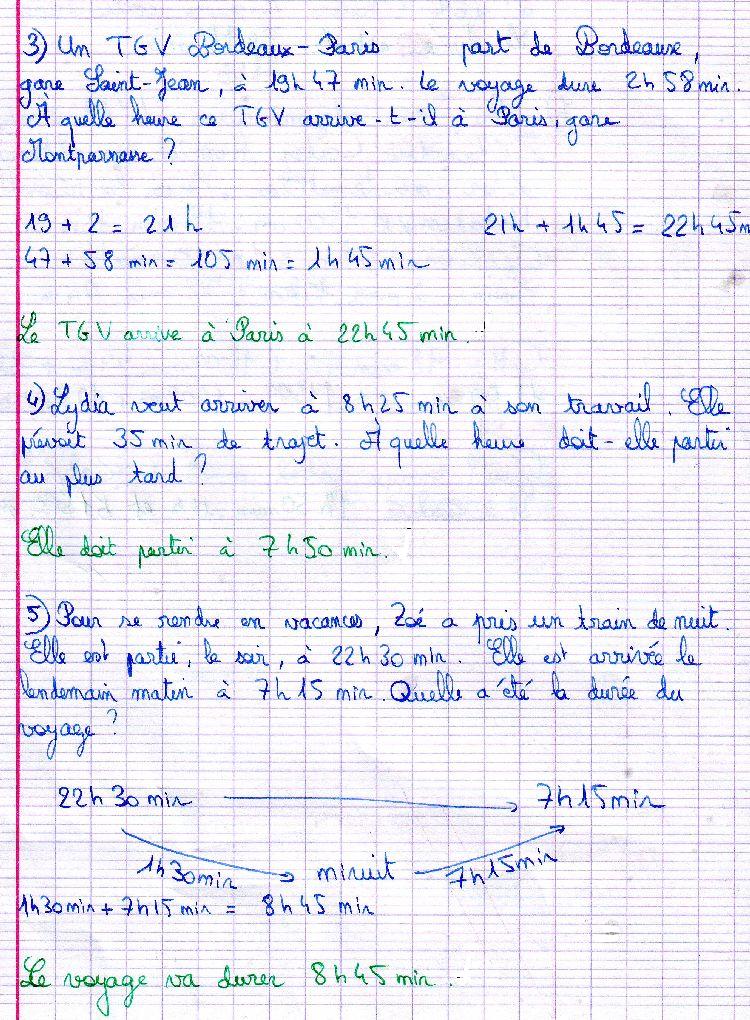 3) Un TGV Bordeaux-Paris part de Bordeaux,
gare Saint-Jean, à 19h 47 min. Le voyage dure 2h 58 min.
À quelle heure ce TGV arrive-t-il à Paris, gare
Montparnasse ?
19 + 2 = 21h 21h + 1h45 = 22h45m
47 + 58 min = 105 min = 1h 45 min
Le TGV arrive à Paris à 22h 45 min.
4) Lydia veut arriver à 8h25 min à son travail. Elle
prévoit 35 min de trajet. À quelle heure doit-elle partir
au plus tard ?
Elle doit partir à 7h50 min.
5) Pour se rendre en vacances, Zoé a pris un train de nuit.
Elle est partie, le soir, à 22h 30 min. Elle est arrivée le
lendemain matin à 7h 15 min. Quelle a été la durée du
voyage ?
22h 30 min 7h15min
1h30min minuit 7h15min
1h30min + 7h15 min = 8h 45 min
Le voyage va durer 8h45 min.